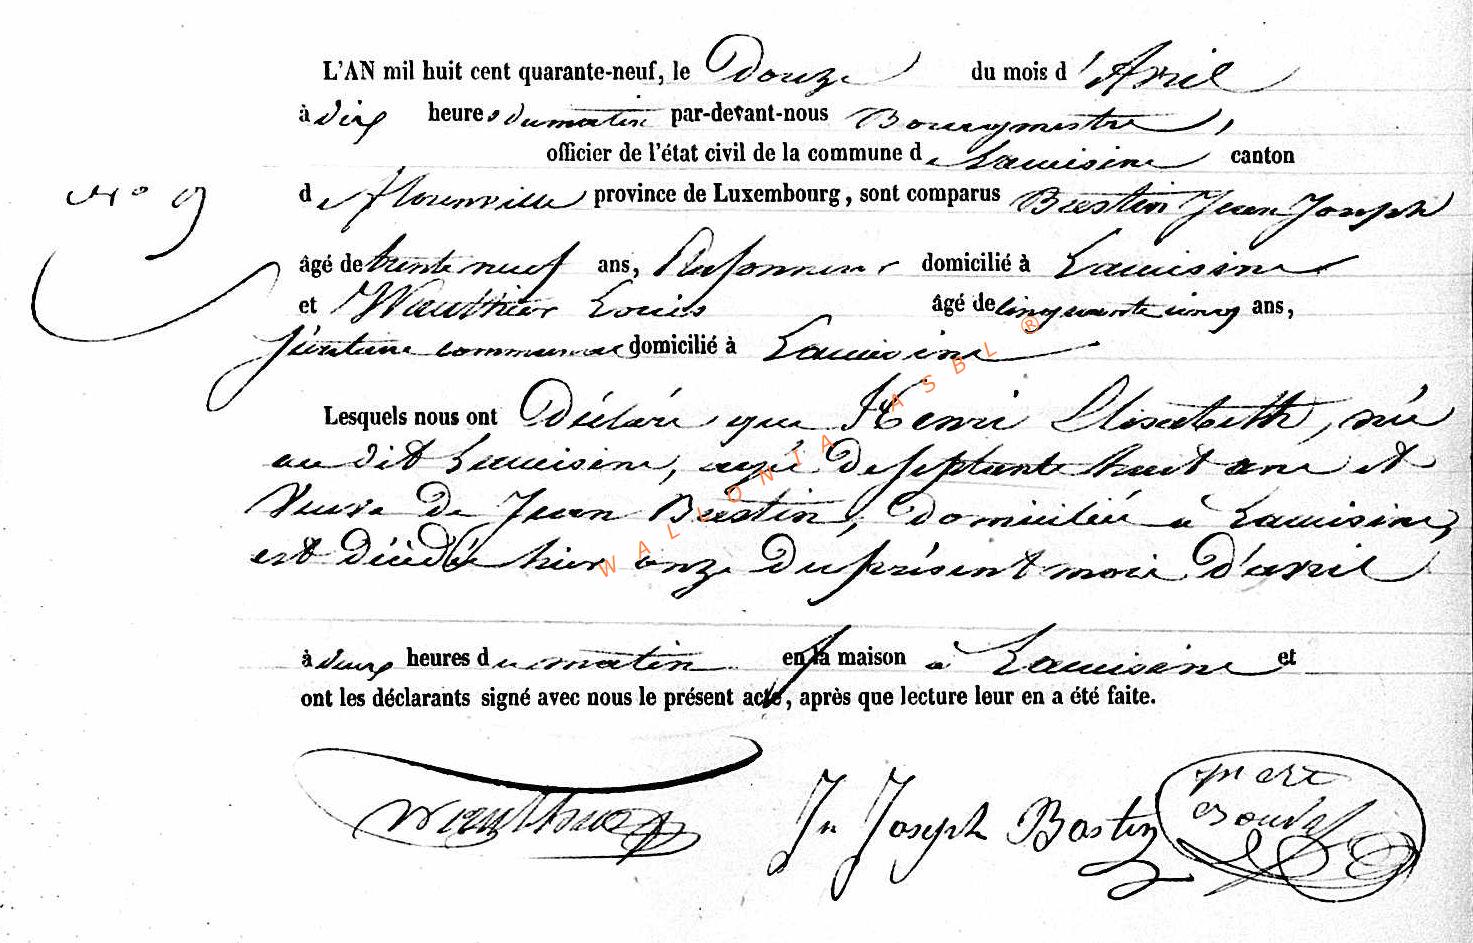 L'AN mil huit cent quarante-neuf, le Douze du mois d'Avril
à dix heures du matin par-devant-nous Bourgmestre,
officier de l'état civil de la commune de Lacuisine canton
N° 9
de florenville province de Luxembourg, sont comparus Bastin Jean Joseph
âgé de trente neuf ans, domicilié à Lacuisine
et Wauthier Louis âgé de cinquante cinq ans,
communal domicilié à Lacuisine
Lesquels nous ont Déclaré que Henri Elisabeth, née
au dit Lacuisine, agée de septante huit ans et
Veuve de Jean Bastin, domiciliée à Lacuisine,
est décédée hier onze du présent mois d'avril
à deux heures du matin en sa maison à Lacuisine et
ont les déclarants signé avec nous le présent acte, après que lecture leur en a été faite.
Wauthier Jn Joseph Bastin
WALLONIA ASBL ®